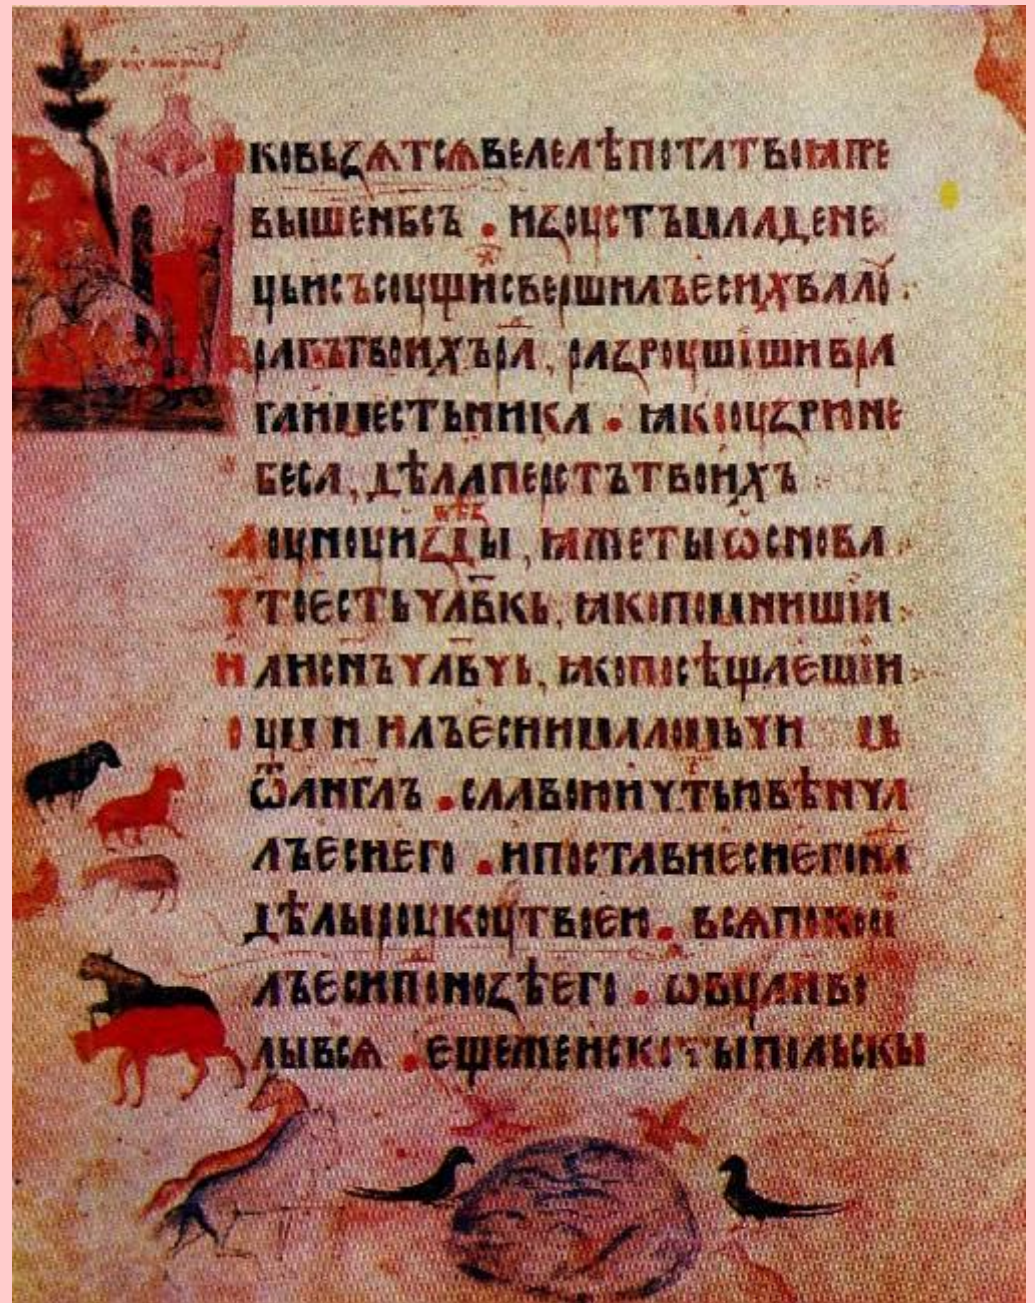 ковьзѧтсѧвелелѣпотатвоꙗпре
вышенбсъ • изоустъмладене
цьисъсоущисвершилъесихвалоу
врагътвоихъра, разроушишивра
гаиместьника • ꙗкооузрине
беса, дѣлаперстътвоихъ
лоуноуиꙁвѣꙁды, ꙗжетыѡснова
Чтоестьчлвкь, ꙗкопомнишїи
илиснъчлвчь, ꙗкопосѣщаешїи
оумнилъесиималомьчи мь
ѿангглъ • славоиичтьивѣнча
лъесиего • ипоставиесиегона
дѣлыроукоутвоею • всѧпокори
лъесиподнозѣего • ѡвцаиво
лывсѧ • ещежеискотыпольскы